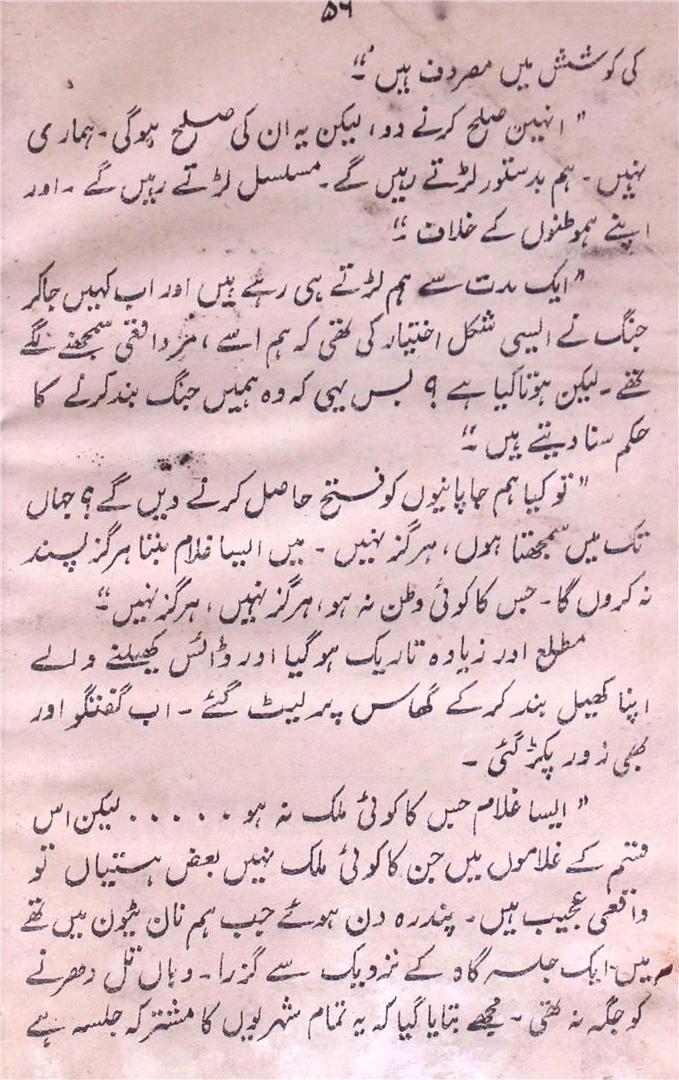 ۵۶
کی کوشش میں مصروف ہیں“۔
”انہین صلح کرنے دو، لیکن یہ ان کی صلح ہوگی۔ ہماری
نہیں۔ ہم بدستور لڑتے رہیں گے۔ مسلسل لڑتے رہیں گے۔ اور
اپنے ہموطنوں کے خلاف“۔
”ایک مدت سے ہم لڑتے ہی رہے ہیں اور اب کہیں جاکر
جنگ نے ایسی شکل اختیار کی تھی کہ ہم اسے ، مزدافقی سمجھنے لگے
تھے۔ لیکن ہوتا کیا ہے؟ بس یہی کہ وہ ہمیں جنگ بند کرنے کا
حکم سنا دیتے ہیں“۔
”تو کیا ہم جاپانیوں کو فتح حاصل کرنے دیں گے؟ جہاں
تک میں سمجھتا ہوں، ہرگز نہیں۔ میں ایسا غلام بننا ہرگز پسند
نہ کروں گا۔ جس کا کوئی وطن نہ ہو، ہرگز نہیں، ہرگز نہیں“۔
مطلع اور زیادہ تاریک ہوگیا اور ڈائس کھیلنے والے
اپنا کھیل بند کرکے گھاس پر لیٹ گئے۔ اب گفتگو اور
بھی زور پکڑ گئی۔
”ایسا غلام جس کا کوئی ملک نہ ہو ..... لیکن اس
قسم کے غلاموں میں جن کا کوئی ملک نہیں بعض ہستیاں تو
واقعی عجیب ہیں۔ پندرہ دن ہوئے جب ہم نان ٹیون میں تھے
میں ایک جلسہ گاہ کے نزدیک سے گزرا۔ وہاں تل دھرنے
کو جگہ نہ تھی۔ مجھے بتایا گیا کہ یہ تمام شہریوں کا مشترکہ جلسہ ہے